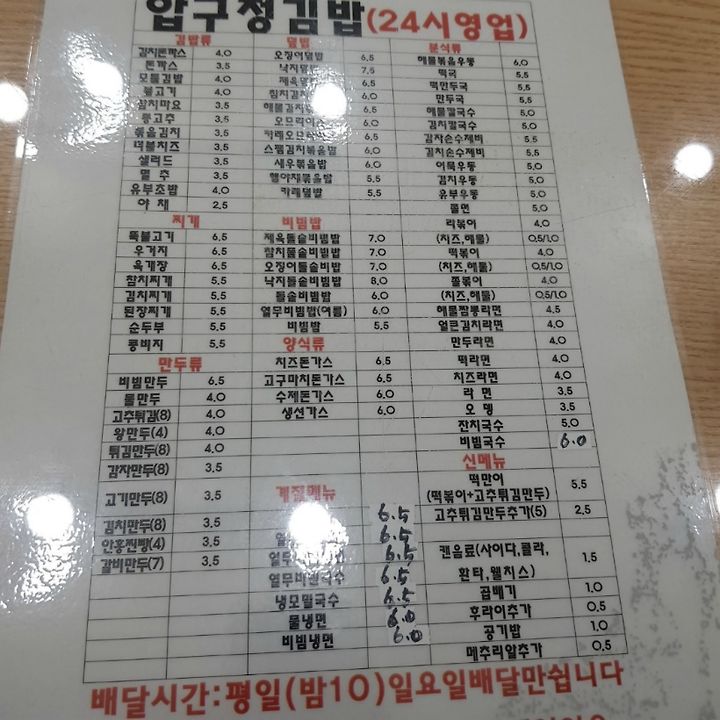 압구정김밥(24시영업)
김밥류
김치돈까스 4,0
돈까스 3,5
모듬김밥 4,0
불고기 4,0
참치마요 3,5
땡고추 3,5
볶음김치 3,5
떡볶치즈 3,5
샐러드 3,5
멸추 3,5
유부초밥 4,0
야채 2,5
찌개
뚝불고기 6,5
우거지 6,5
육개장 6,5
참치찌개 5,5
김치찌개 5,5
된장찌개 5,5
순두부 5,5
콩비지 5,5
만두류
비빔만두 6,5
물만두 4,0
고추튀김(8) 4,0
왕만두(4) 4,0
튀김만두(8) 4,0
감자만두(8) 3,5
고기만두(8) 3,5
김치만두(8) 3,5
안흥찐빵(4) 3,5
갈비만두(7) 3,5
덮밥
오징어덮밥 6,5
낙지덮밥 7,5
제육 6,5
참치김치 6,0
해물김치 6,5
오므라이스 6,0
카레오므 6,5
스팸김치볶음밥 6,0
새우볶음밥 6,0
햄야채볶음밥 5,5
카레덮밥 5,5
비빔밥
제육돌솥비빔밥 7,0
참치돌솥비빔밥 7,0
오징어돌솥비빔밥 7,0
낙지돌솥비빔밥 8,0
돌솥비빔밥 6,0
열무비빔밥(여름) 6,0
비빔밥 5,5
양식류
치즈돈가스 6,5
고구마치돈가스 6,5
수제돈가스 6,0
생선가스 6,0
계절메뉴
6.5
6.5
열무 6.5
열무비빔국수 6.5
냉모밀국수 6.5
물냉면 6.0
비빔냉면 6.0
분식류
해물볶음우동 6,0
떡국 5,5
떡만두국 5,5
만두국 5,5
해물칼국수 5,0
김치칼국수 5,0
감자손수제비 5,5
김치손수제비 5,5
어묵우동 5,0
김치우동 5,0
유부우동 5,0
쫄면 5,0
라볶이 4,0
(치즈,해물) 0,5/1,0
떡볶이 4,0
(치즈,해물) 0,5/1,0
쫄볶이 4,0
(치즈,해물) 0,5/1,0
해물짬뽕라면 4,5
얼큰김치라면 4,0
만두라면 4,0
떡라면 4,0
치즈라면 4,0
라면 3,5
오뎅 3,5
잔치국수 5,0
비빔국수 6.0
신메뉴
떡만이
(떡볶이+고추튀김만두) 5,5
고추튀김만두추가(5) 2,5
캔음료(사이다,콜라,
환타,웰치스) 1,5
곱빼기 1,0
후라이추가 0,5
공기밥 1,0
메추리알추가 0,5
배달시간:평일(밤10)일요일배달만쉽니다